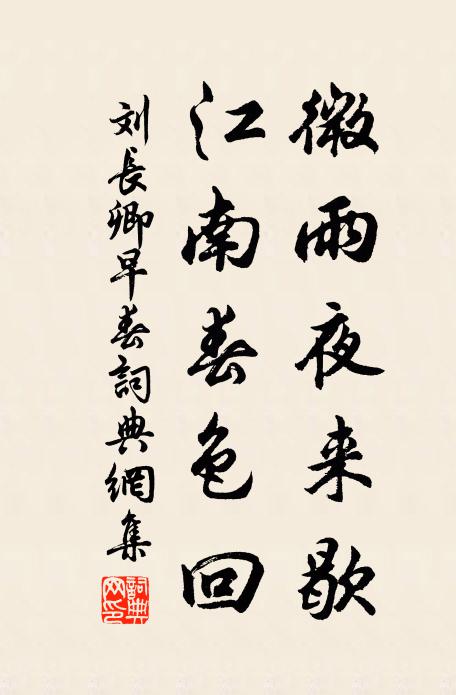 微雨夜来歇
江南春色回
刘長卿早春詞典網集
詞典
网印